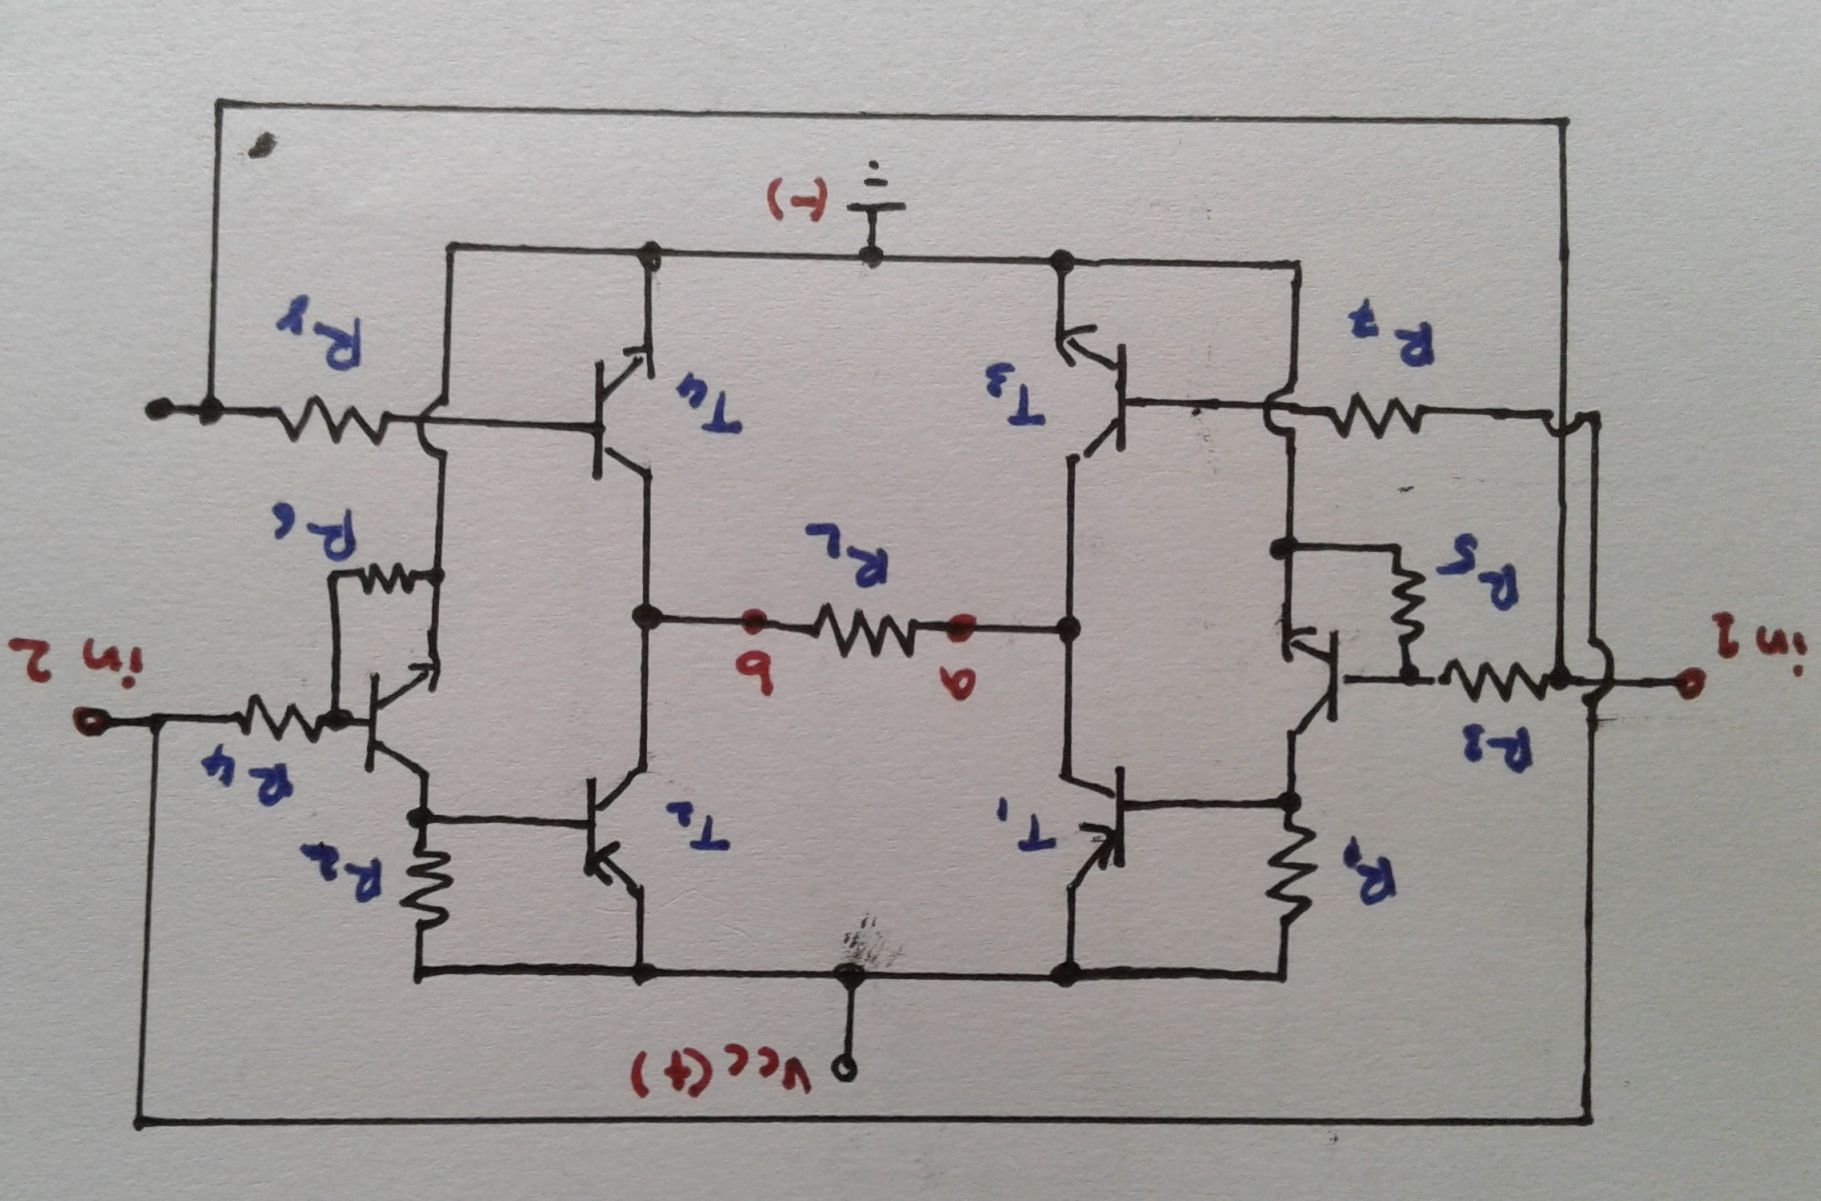 Vcc(+)
R1
T1
T2
R2
R3
R4
in 1
a
b
in 2
R5
RL
R6
T3
T4
R7
R8
(-)